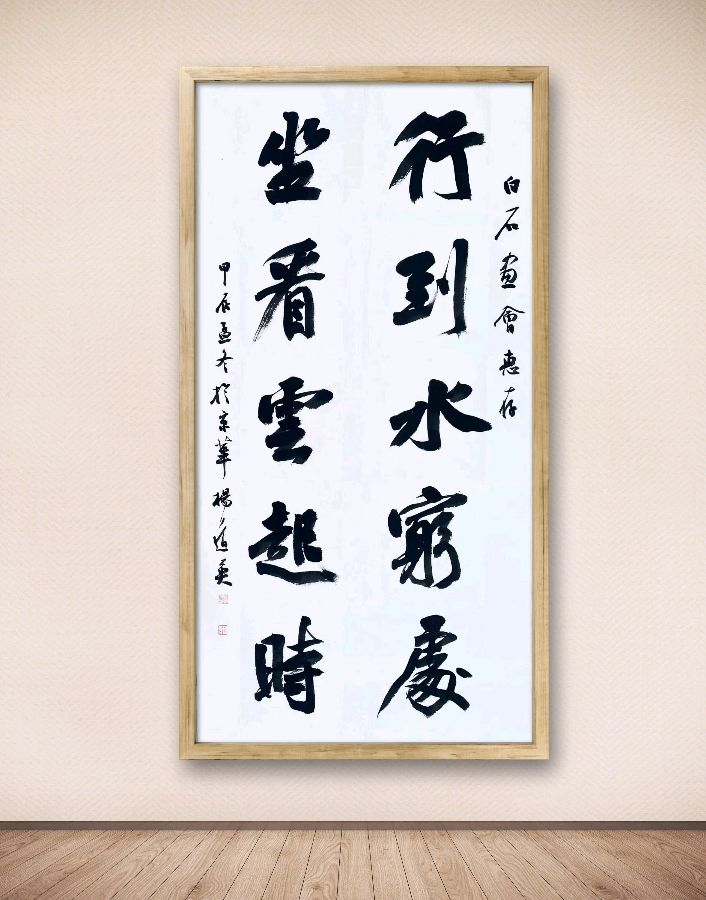 白石畫會惠存
行到水窮處
坐看雲起時
甲辰孟冬於京華楊道英